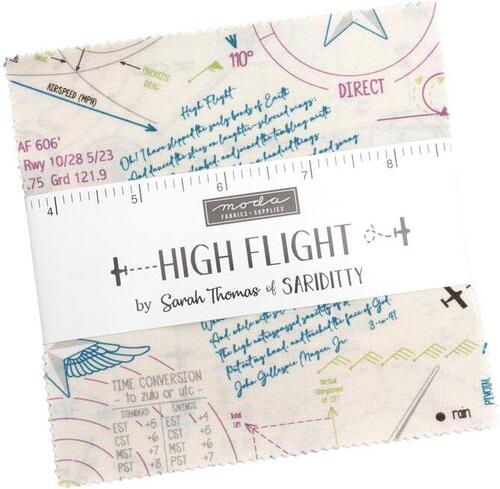 DRAG
PARASITE
DRAG
AIRSPEED (MPH)
110°
DIRECT
High Flight
AF 606'
Rwy 10/28 5/23
.75 Grd 121.9
Oh! I have slipped the surly bonds of Earth
And danced the skies on laughter-silvered wings;
4 5 6 7 8
moda
FABRICS + SUPPLIES
HIGH FLIGHT
by Sarah Thomas of SARIDITTY
And, while with
The high untrespassed sanctity of
Put out my hand, and touched the face of God.
John Gillespie Magee, Jr.
TIME CONVERSION
- to zulu or utc -
STANDARD SAVINGS
EST +5 EST +4
CST +6 CST +5
MST +7 MST +6
PST +8 PST +7
Total
Lift
Vertical
Component
of Lift
rain